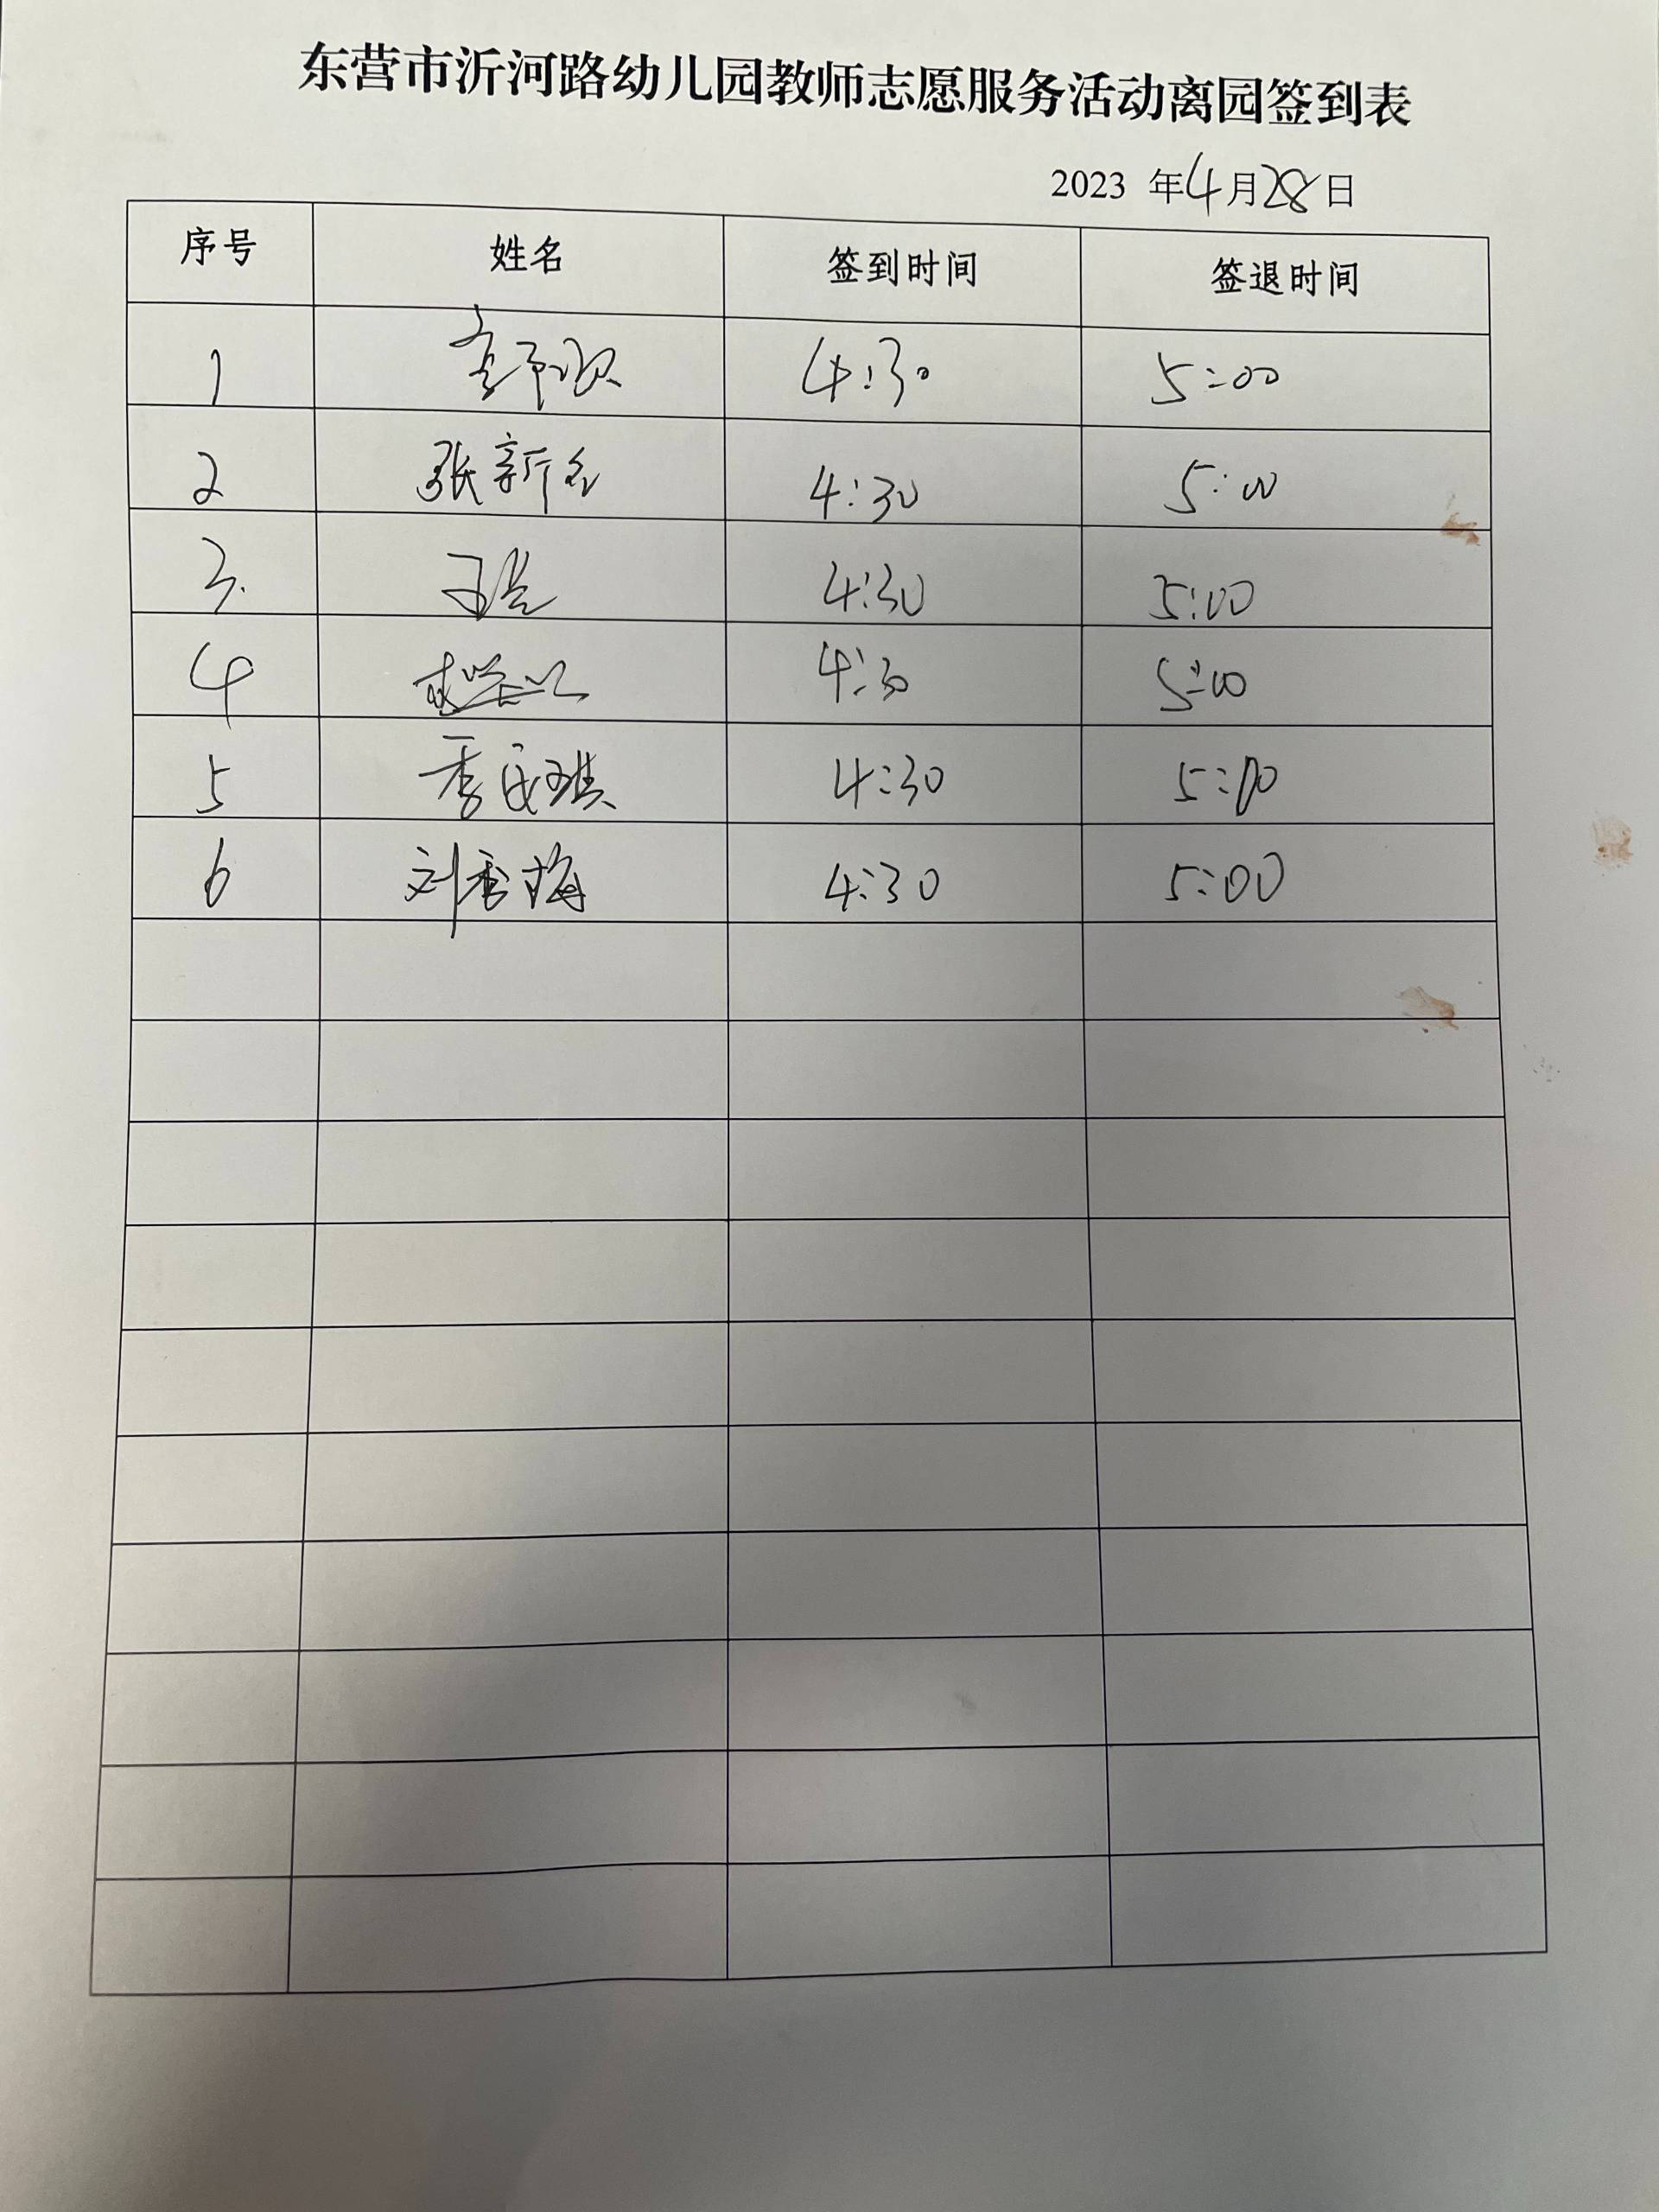 东营市沂河路幼儿园教师志愿服务活动离园签到表
2023 年4月28日
序号 姓名 签到时间 签退时间
1 4:30 5:00
2 张新 4:30 5:00
3. 4:30 5:00
4 4:30 5:00
5 季 琪 4:30 5:00
6 刘秀梅 4:30 5:00